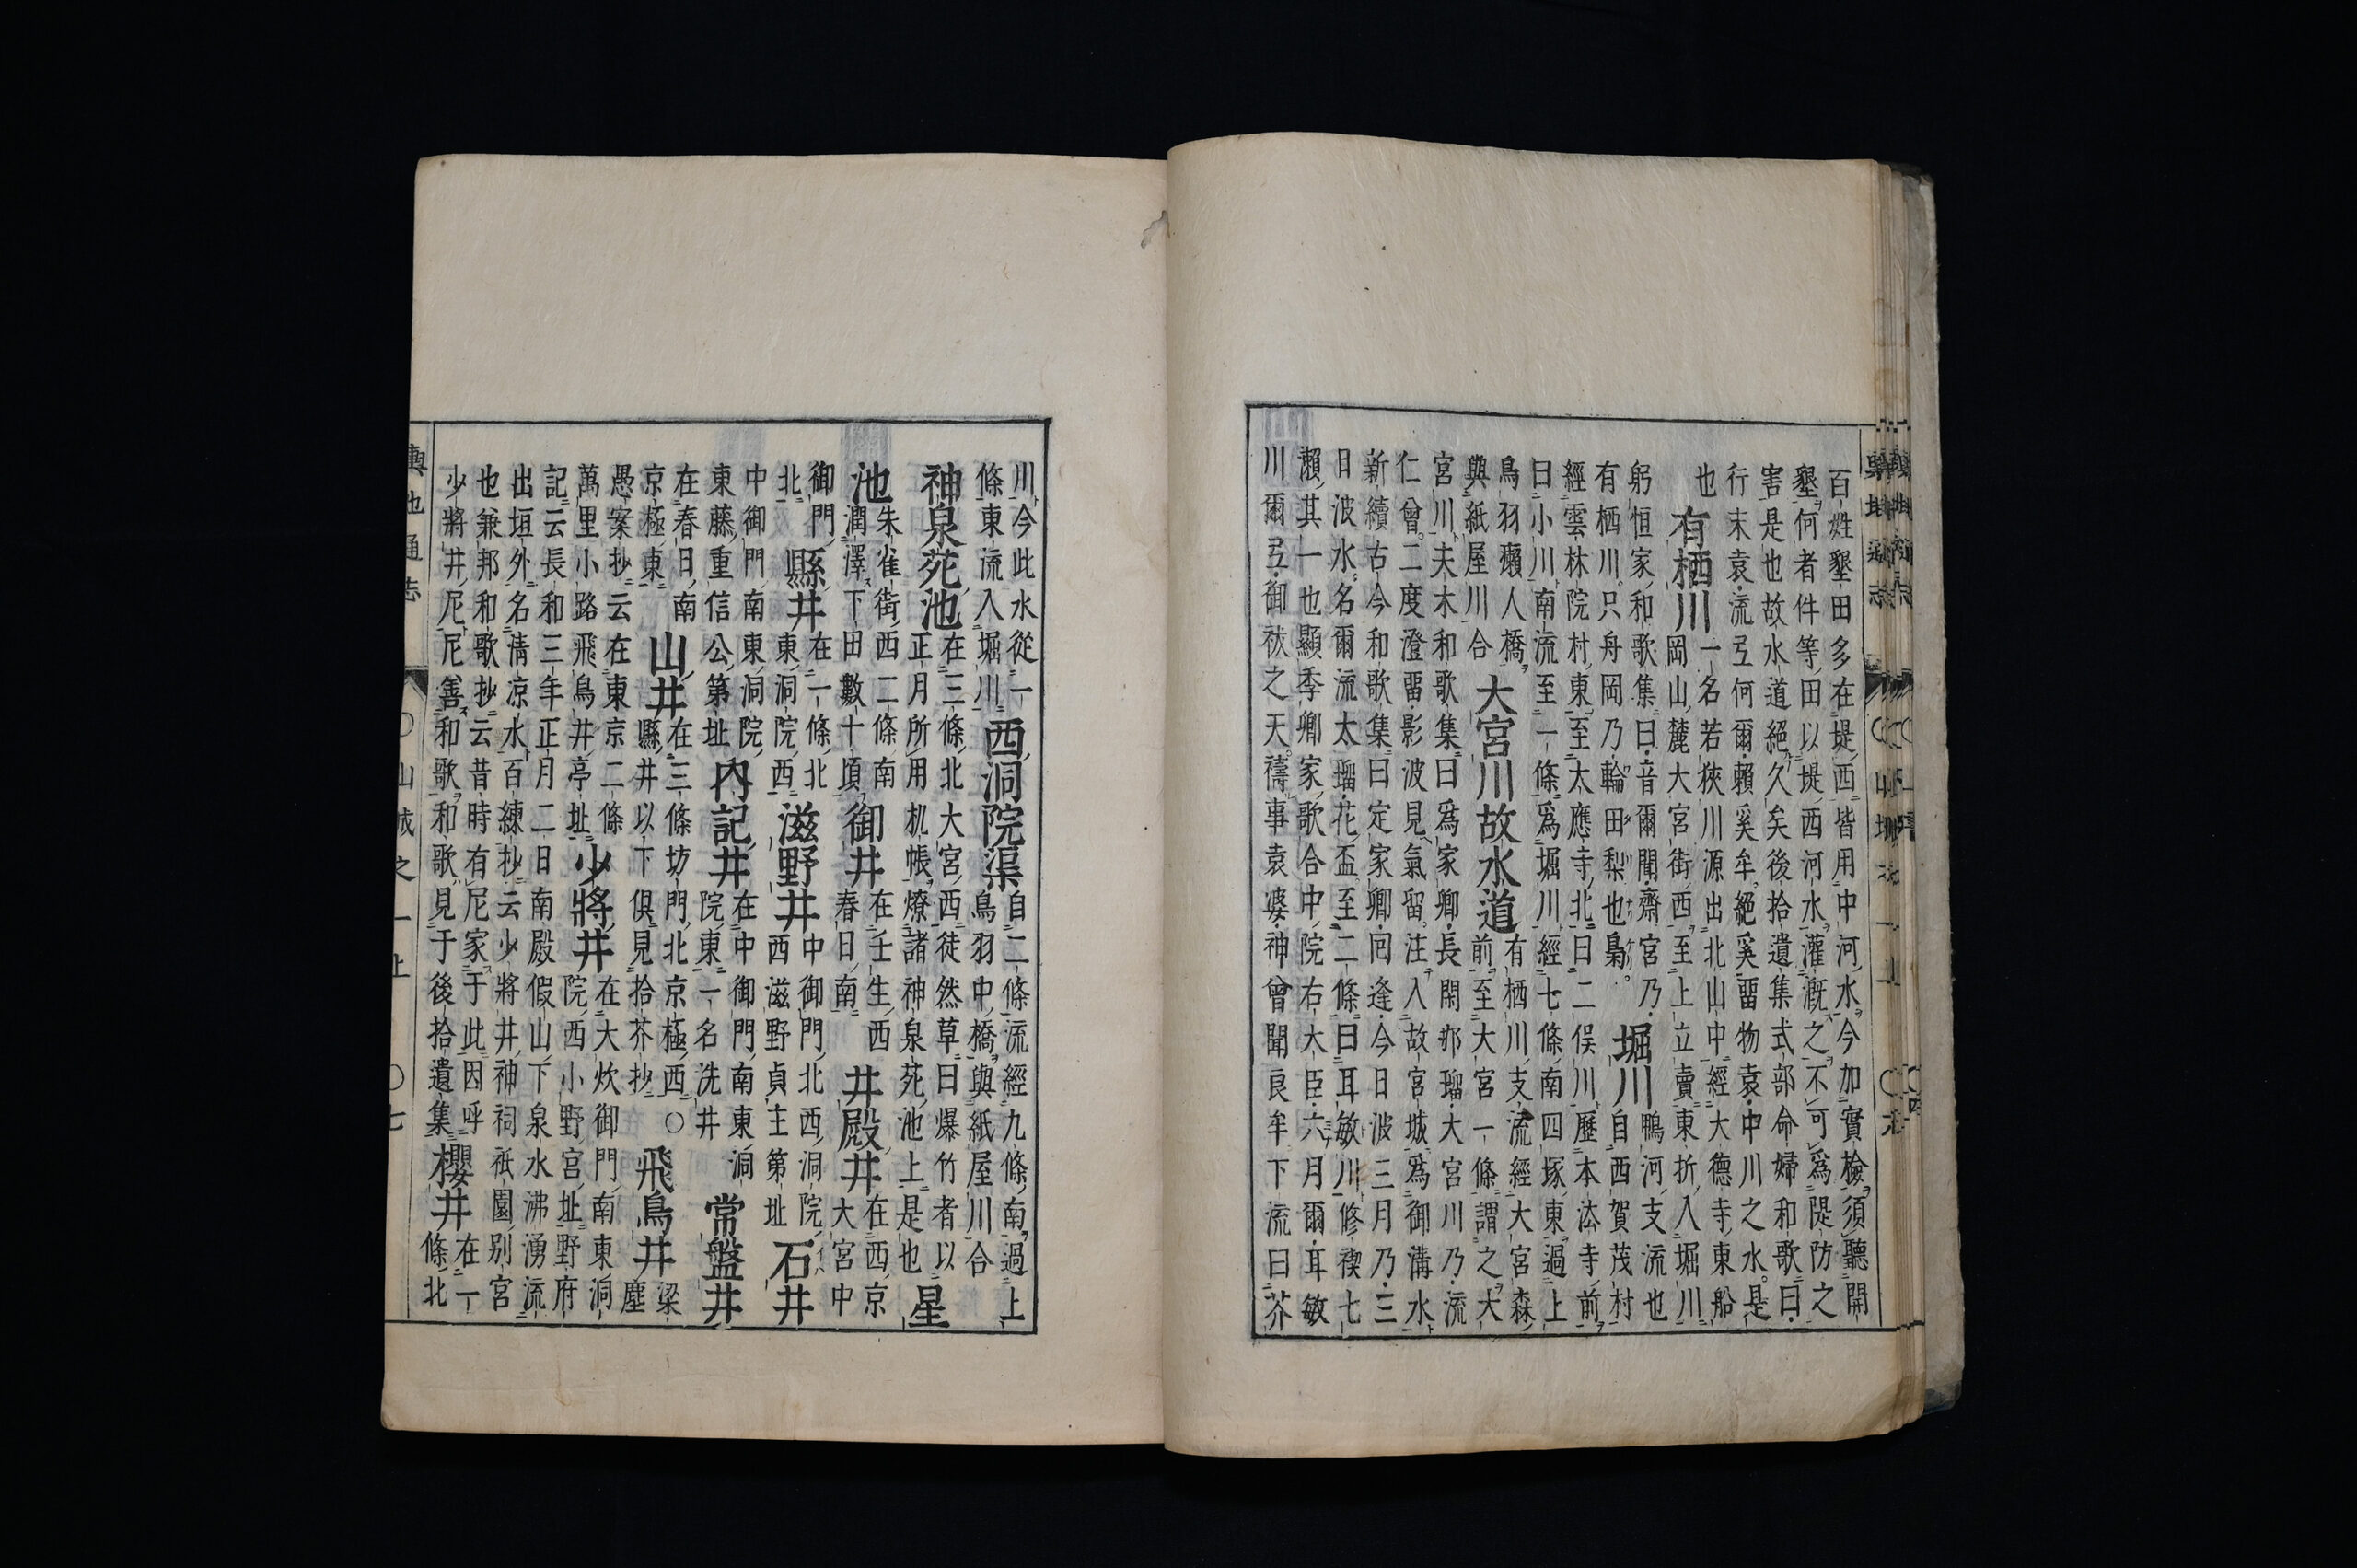 百姓墾田多在堤西皆用中河水今加實檢須聽開
墾何者件等田以堤西河水灌漑之不可爲隄防之
害是也故水道絕久矣後拾遺集式部命婦和歌曰
行末袁流弖何爾賴奚牟絕奚畱物袁中川之水是
也
有栖川
一名若狹川源出北山中經大德寺東船
岡山麓大宮街西至上立賣東折入堀川
躬恒家和歌集曰音爾聞齋宮乃
有栖川只舟岡乃輪田梨也鳧
堀川
鴨河支流也
自西賀茂村
經雲林院村東至太應寺北曰二俣川歷本法寺前
曰小川南流至一條爲堀川經七條南四塚東過上
鳥羽癩人橋
與紙屋川合
大宮川故水道
有栖川支流經大宮森
前至大宮一條謂之大
宮川夫木和歌集曰爲家卿長閑郍瑠大宮川乃流
仁曾二度澄畱影波見氣留注入故宮城爲御溝水
新續古今和歌集曰定家卿囘逢今日波三月乃三
日波水名爾流太瑠花盃至二條曰耳敏川修禊七
瀨其一也顯季卿家歌合中院右大臣六月爾耳敏
川爾弖御祓之天禱事袁婆神曾聞良牟下流曰芥
川今此水從一
條東流入堀川
西洞院渠
自二條流經九條南過上
鳥羽中橋與紙屋川合
神泉苑池
在三條北大宮西徒然草曰爆竹者以
正月所用机帳燎諸神泉苑池上是也
星
池
朱雀街西二條南
潤澤下田數十頃
御井
在壬生西
春日南
井殿井
在西京
大宮中
御門
北
縣井
在一條北
東洞院西
滋野井
中御門北西洞院
西滋野貞主第址
石井
中御門南東洞院
東藤重信公第址
內記井
在中御門南東洞
院東一名洗井
常盤井
在春日南
京極東
山井
在三條坊門北京極西○
縣井以下俱見拾芥抄
飛鳥井
梁
塵
愚案抄云在東京二條
萬里小路飛鳥井亭址
少將井
在大炊御門南東洞
院西小野宮址野府
記云長和三年正月二日南殿假山下泉水沸湧流
出垣外名淸凉水百練抄云少將井神祠祇園別宮
也兼邦和歌抄云昔時有尼家于此因呼
少將井尼尼善和歌和歌見于後拾遺集
櫻井
在一
條北
輿地通志 ○山城之一上 ○七